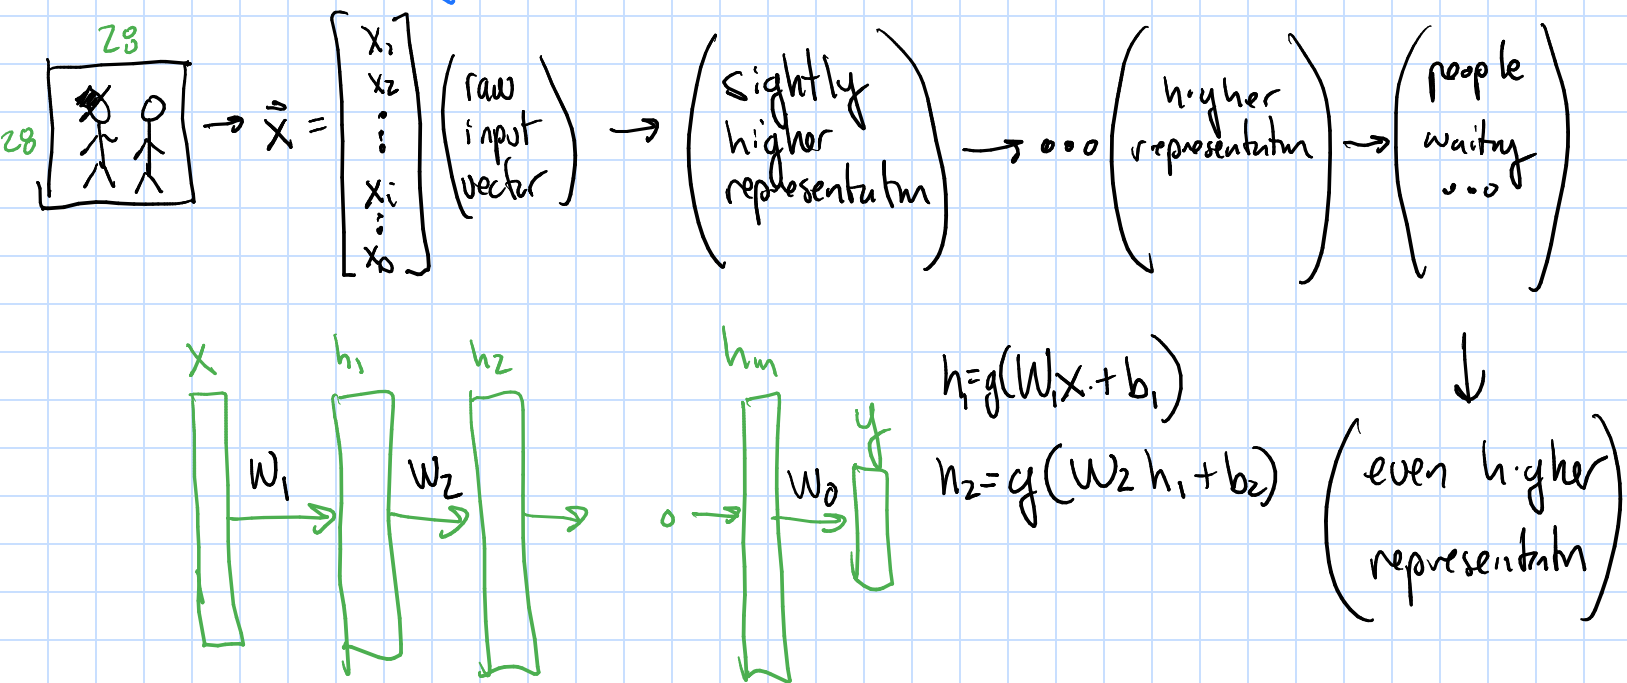 28
28
→ x⃗ =
x₁
x₂
⋮
xᵢ
⋮
x_D
raw
input
vector
→
sightly
higher
representatm
→ ...
higher
representatm
→
people
waiting
...
↓
even higher
representatm
x
h₁
h₂
hₘ
y
W₁
W₂
W₀
h₁=g(W₁x+b₁)
h₂=g(W₂h₁+b₂)